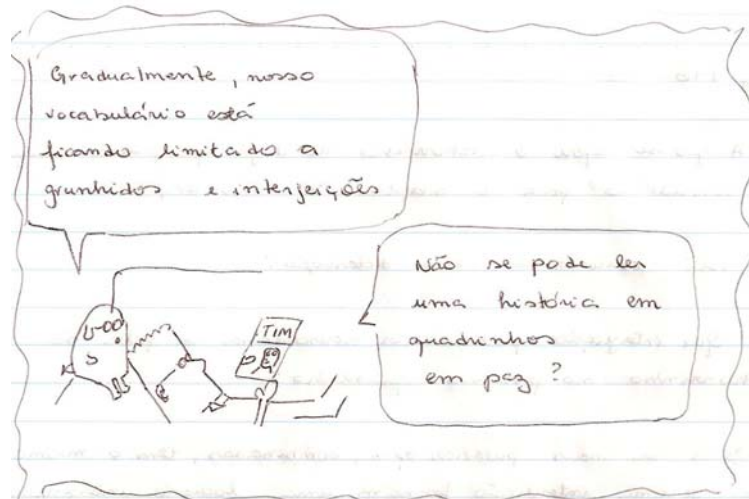 Gradualmente, nosso
vocabulário está
ficando limitado a
grunhidos e interjeições
Não se pode ler
uma história em
quadrinhos
em paz?
TIM